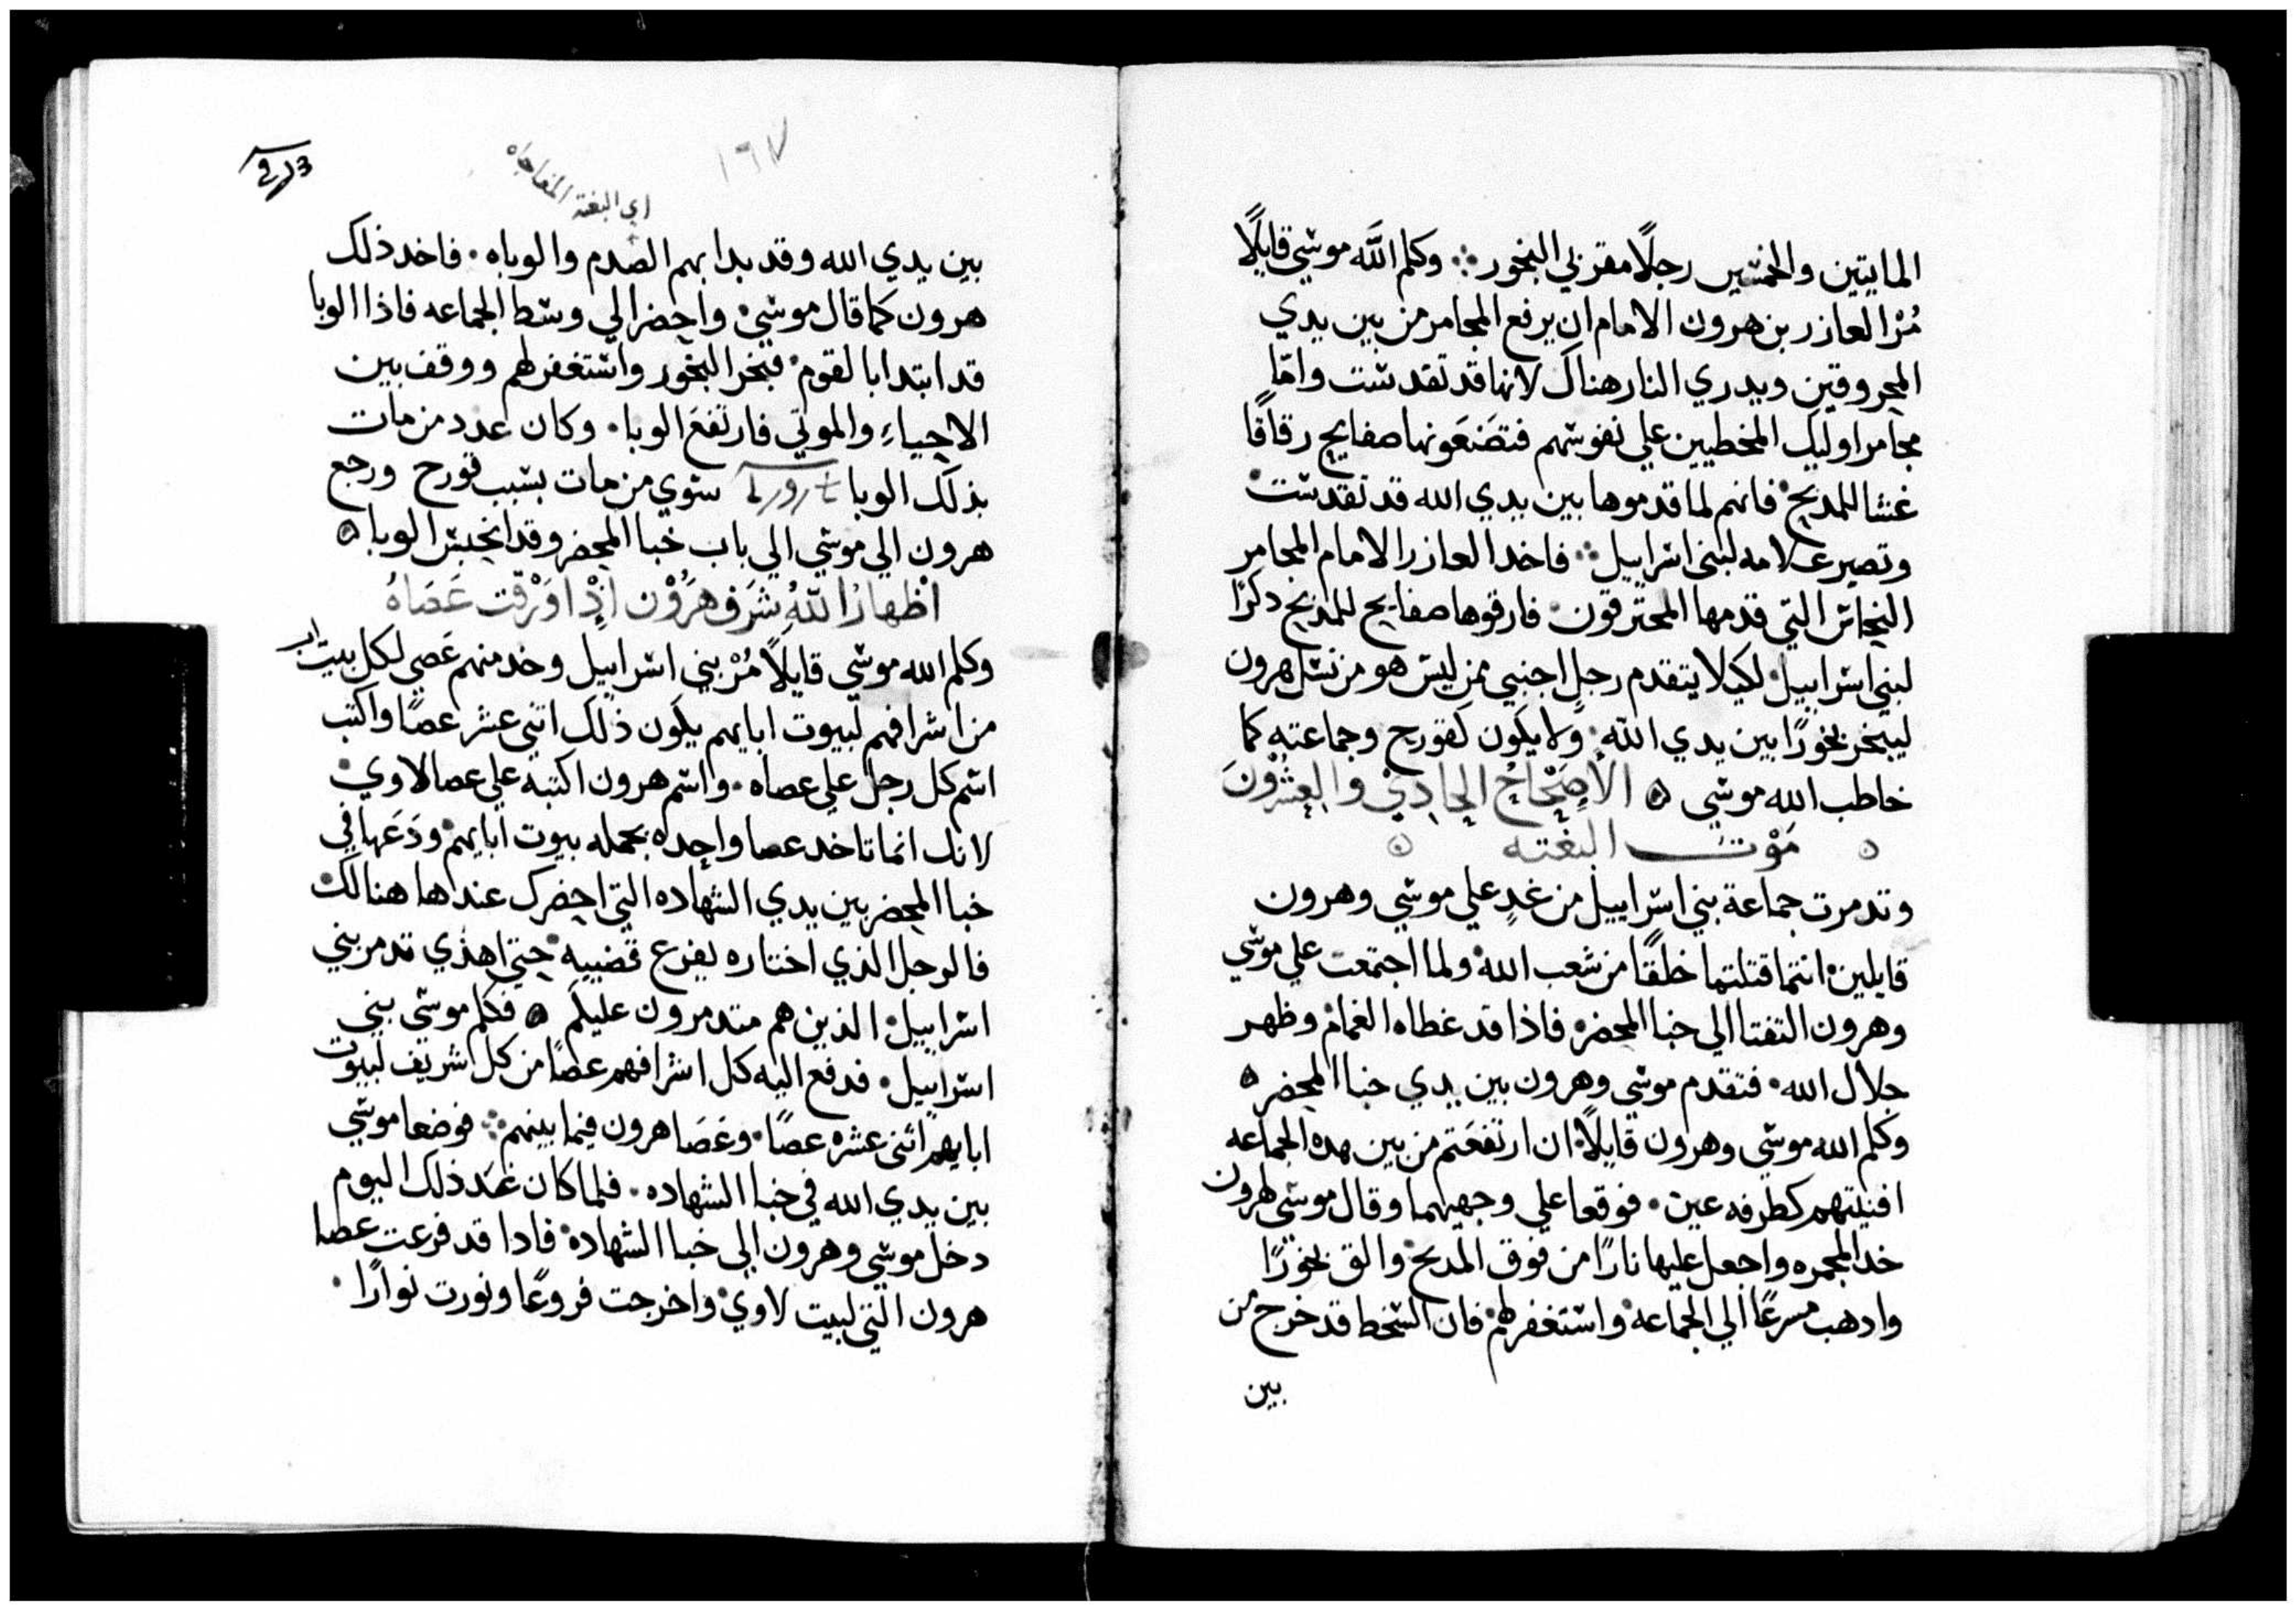 المايتين والخمسين رجلًا مقربي البخور ⁘ وكلم اللَّه موسي قايلًا
مُرْ العازر بن هرون الامام ان يرفع المجامر من بين يدي
المحروقين ويدري النار هناك لانها قد تقدست وامّا
مجامر اوليك المخطيين علي نفوسهم فتصَنعَونها صفايح رقاقًا
غشا للمدبح فانهم لما قدموها بين يدي الله قد تقدست
وتصير علامه لبني اسراييل ⁘ فاخد العازر الامام المجامر
النحاس التي قدمها المحترقون فارقوها صفايح للمدبح دكرًا
لبني اسراييل لكيلا يتقدم رجلٍ اجنبي ممن ليس هو من نسل هرون
ليبخر بخورًا بين يدي اللّه ولا يكون كقورح وجماعته كما
خاطب الله موسي ه الأصْحَاحُ الحادِيْ والعِشُرْونَ
ه مَوْت البغته ه
وتدمرت جماعة بني اسراييل من غدٍ علي موسي وهرون
قايلين انتما قتلتما خلقًا من شعب الله ولما اجتمعت علي موسي
وهرون التفتا الي خبا المحضر فاذا قد غطاه الغمام وظهر
جلال الله فتقدم موسي وهرون بين يدي خبا المحضر ه
وكلم الله موسي وهرون قايلًا ان ارتفعَتم من بين هده الجماعه
افنيتهم كطرفه عين فوقعا علي وجهيهما وقال موسي لهرون
خد المجمره واجعل عليها نارًا من فوق المدبح والق بخورًا
وادهب مسرعًا الي الجماعه واستغفر لهم فان السخط قد خرج من
بين
١٦٧
اي البغته المفاجاه
بين يدي الله وقد بدا بهم الصدم والوباه فاخد ذلك
هرون كما قال موسي واحضر الي وسط الجماعه فاذا الوبا
قد ابتدا بالقوم فبخر البخور واستغفر لهم ووقف بين
الاحياءِ والموتي فارتفعَ الوبا وكان عدد من مات
بذلك الوبا سوي من مات بسبب قورح ورجع
هرون الي موسي الي باب خبا المحضر وقد انحبس الوبا ه
اظهارُ اللّهُ شرَف هرُوْن اذْ اوَرْقت عَصَاهُ
وكلم الله موسي قايلًا مُرْ بني اسراييل وخد منهم عَصي لكل بيت اب
من اشرافهم لبيوت ابايهم يكون ذلك اتني عشر عصًا واكتب
اسم كل رجل علي عصاه واسم هرون اكتبه علي عصا لاوي
لانك انما تاخد عصا واحده بجمله بيوت ابايهم ودَعَها في
خبا المحضر بين يدي الشهاده التي احضرك عندها هنالك
فالرجل الذي اختاره يفرع قضيبه حتي اهذي تدمر بني
اسراييل الذين هم متدمرون عليكم ه فكلم موسي بني
اسراييل فدفع اليه كل اشرافهم عصًا من كل اشريف لبيوت
ابايهم اثني عشره عصًا وعَصَا هرون فيما بينهم ⁘ فوضعا موسي
بين يدي الله في خبا الشهاده فلما كان غمَد ذلك اليوم
دخل موسي وهرون الي خبا الشهاده فادا قد فرعت عصا
هرون التي لبيت لاوي واخرجت فروعًا ونورت نوارًا